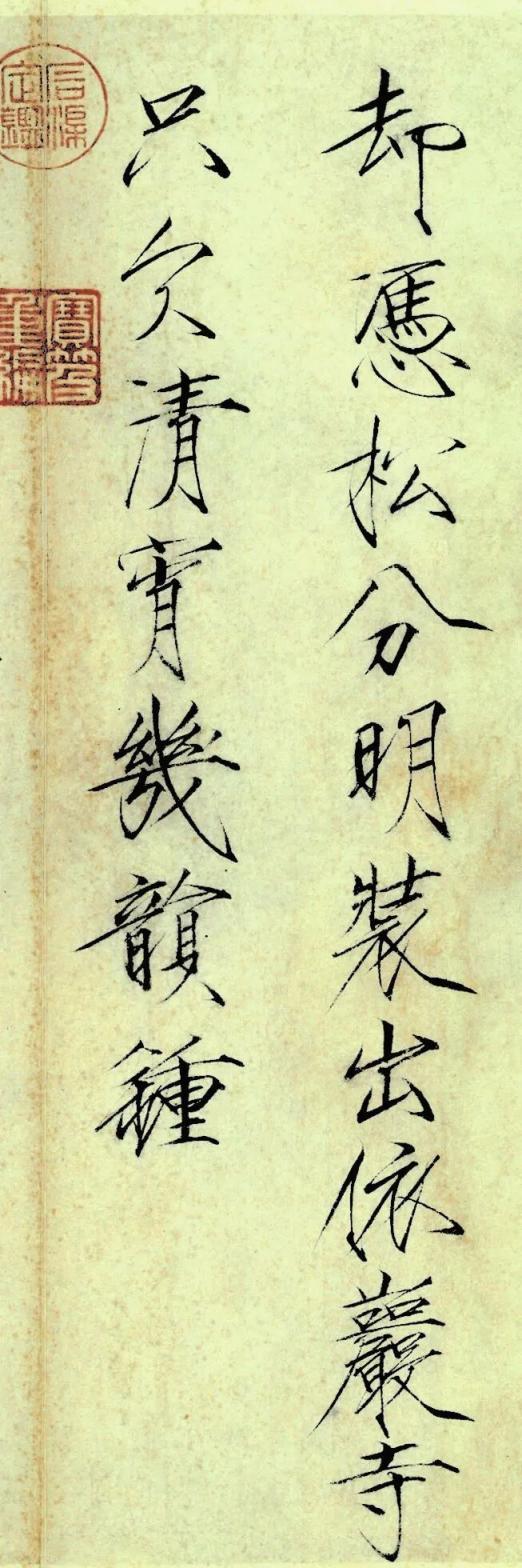 却憑松分明裝出依巖寺
只欠清宵幾韻鍾
寶笈
重編
石渠
定鑑